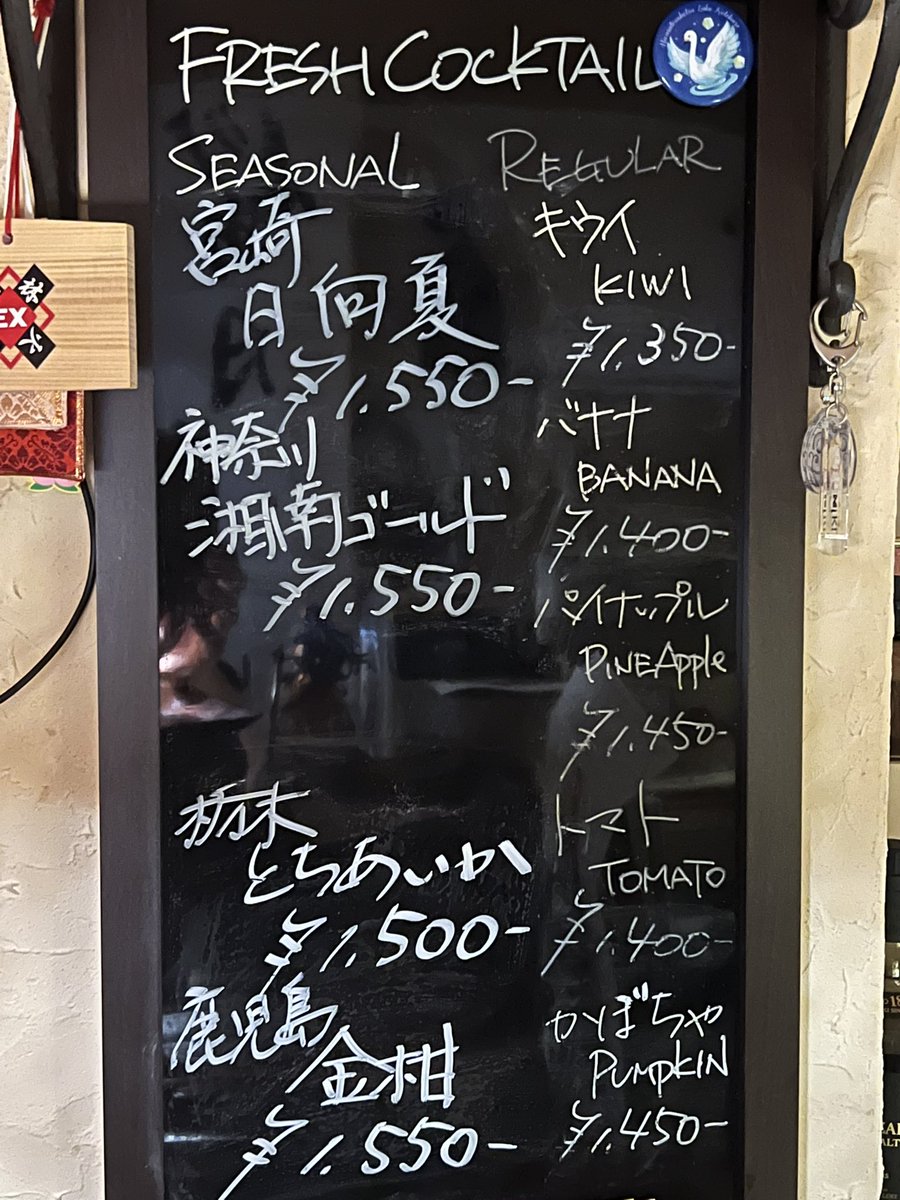 FRESH COCKTAIL
SEASONAL
宮崎
日向夏
¥1.550-
神奈川
湘南ゴールド
¥1.550-
栃木
とちあいか
¥1.500-
鹿児島
金柑
¥1.550-
REGULAR
キウイ
KIWI
¥1.350-
バナナ
BANANA
¥1.400-
パイナップル
PINEApple
¥1.450-
トマト
TOMATO
¥1.400-
かぼちゃ
PUMPKIN
¥1.450-
EX